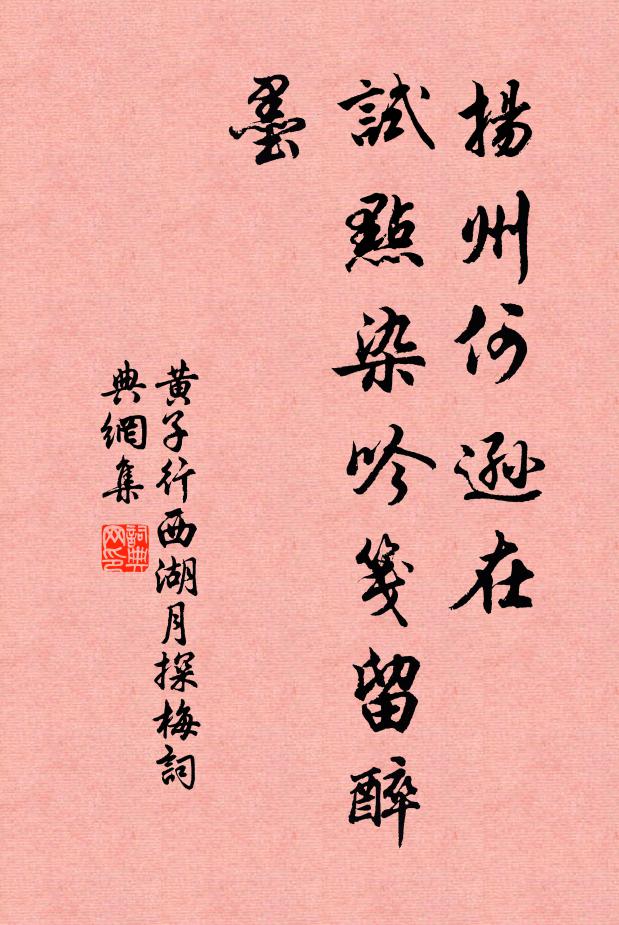 揚州何遜在
試點染吟箋留醉
墨
黃子行西湖月探梅詞
典網集
詞典
网印